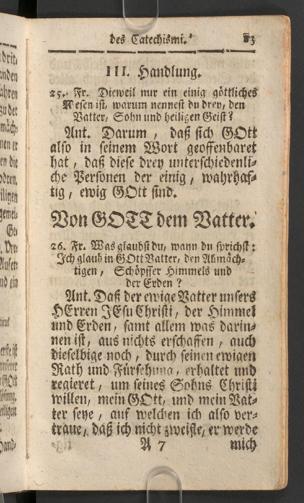 des Catechismi. 83
III. Handlung.
25. Fr. Dieweil nur ein einig göttliches
Wesen ist, warum nennest du drey, den
Vatter, Sohn und heiligen Geist?
Ant. Darum, daß sich GOtt
also in seinem Wort geoffenbaret
hat, daß diese drey unterschiedenli-
che Personen der einig, wahrhaf-
tig, ewig GOtt sind.
Von GOTT dem Vatter.
26. Fr. Was glaubst du, wann du sprichst:
Ich glaub in GOtt Vatter, den Allmäch-
tigen, Schöpffer Himmels und
der Erden?
Ant. Daß der ewige Vatter unsers
HErren JEsu Christi, der Himmel
und Erden, samt allem was darin-
nen ist, aus nichts erschaffen, auch
dieselbige noch, durch seinen ewigen
Rath und Fürsehung, erhaltet und
regieret, um seines Sohns Christi
willen, mein GOtt, und mein Vat-
ter seye, auf welchen ich also ver-
traue, daß ich nicht zweifle, er werde
A 7 mich